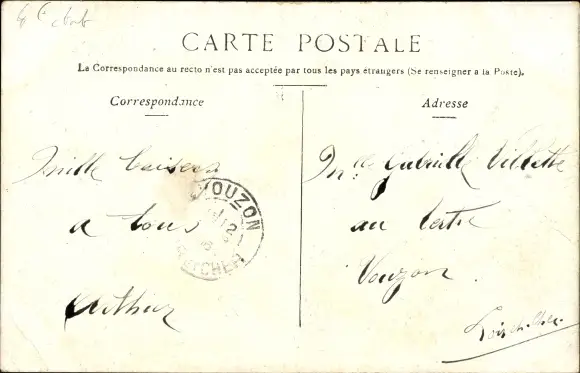 CARTE POSTALE
La Correspondance au recto n'est pas acceptée par tous les pays étrangers (Se renseigner a la Poste).
Correspondance
Adresse
Mille baisers
a tous
Arthur
VOUZON
12
LOIR-ET-CHER
Mlle Gabrielle Villette
au Tertre
Vouzon
Loir et Cher